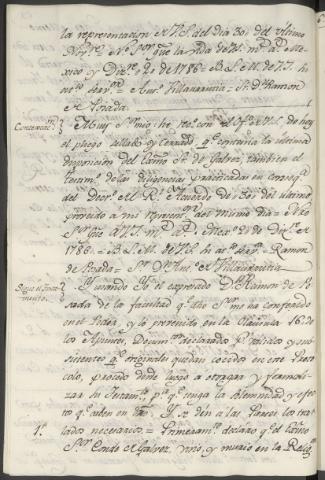 la representacion de V.S. del dia 30,, del ultimo
Nov.re N.ro S.or gue la vida de V.S. m.s a.s Me-
xico y Diz.re 2,, de 1786 = B.L.M. de V.S. su
mas serv.or = Ant.o Villaurrutia = S.r D.n Ramon
de Posada.
Contextac.n Muy S.r mio: he rec.do con el Of.o de V.S. de hoy
el pliego sellado y cerrado q.e contenia la ultima
disposicion del Exmo S.r de Galvez; tambien el
testim.o de las diligencias practicadas en conseq.a
del Decr.to del R.l Acuerdo de 30,, del ultimo
proveido a mi represent.on del mismo dia = N.ro
S.or gue a V.S. m.s a.s Mex.co 2,, de Diz.re de
1786 = B.L.M. de V.S. su at.o serv.or = Ramon
de Posada = S.r D.n Ant.o de Villaurrutia
Sigue el Instru-
mento. Y usando Yo el expresado D.n Ramon de Po-
sada de la facultad q.e dho S.or me ha conferido
en el Poder y lo prevenido en la Clausula 16,, de
los Apuntes, Docum.tos declarando p.r validos y sub-
sistentes q.e originales quedan cosidos en este Proto-
colo, procedo desde luego a otorgar y formali-
zar su Testam.to p.a q.e tenga la solemnidad y efec-
to q.e deben en dro. Y se den a las Partes los tras-
lados necesarios. = Primeram.te declaro q.e el Exmo
1.a S.or Conde de Galvez, vivio, y murio en la Relig.on